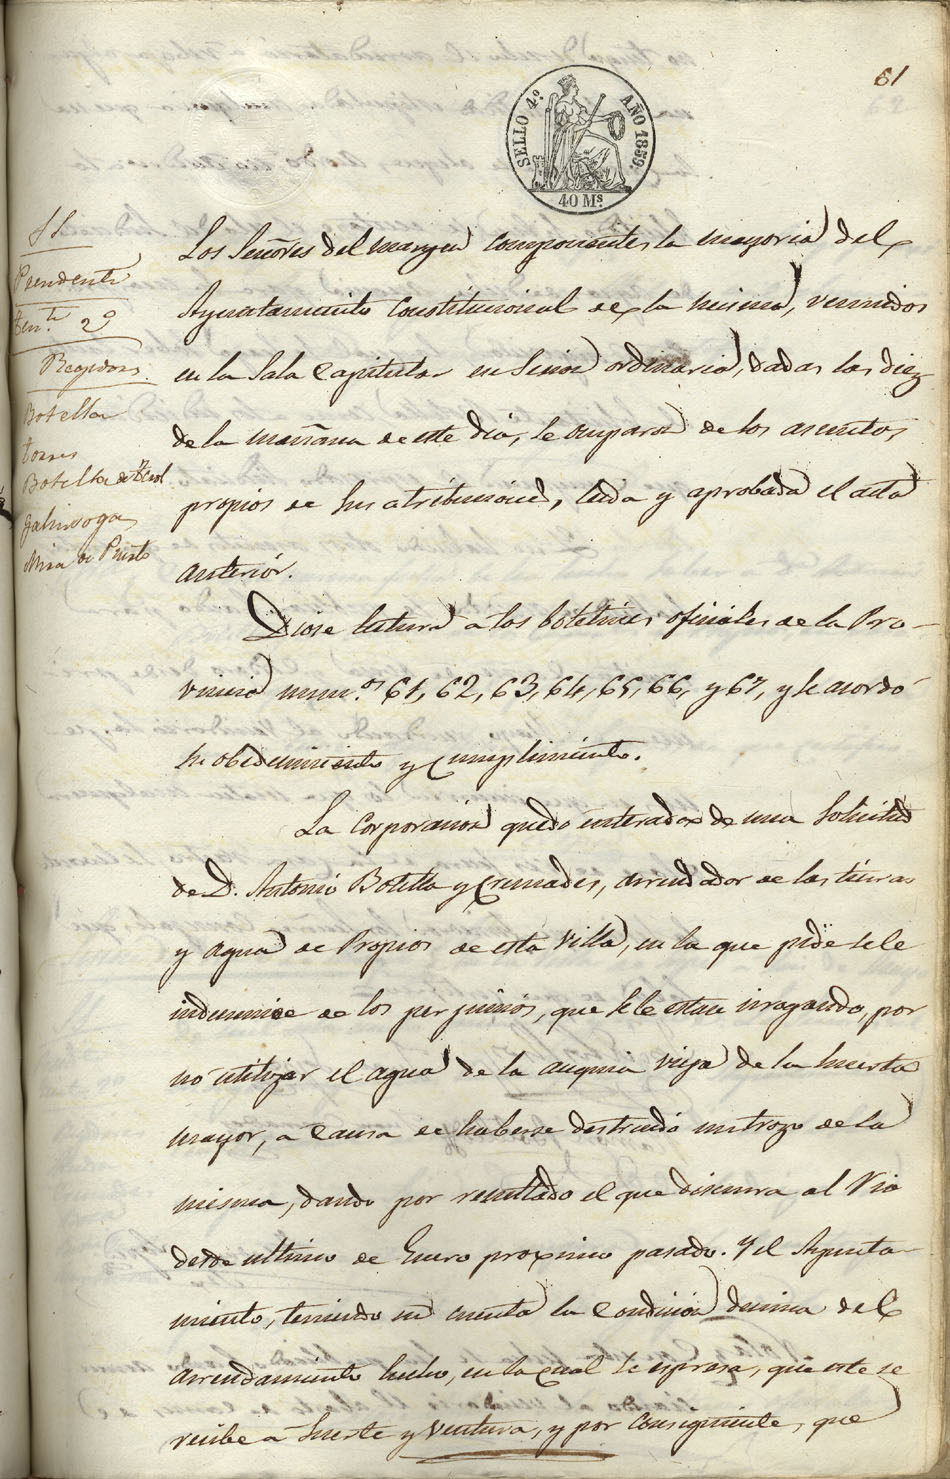 61
SELLO 4.º AÑO 1859.
40 Ms
SS.
Presidente
Ten.te 2º
Regidores
Botella
Torres
Botella de
Mira de Prieto
Los Señores del margen componentes la mayoria del
Ayuntamiento Constitucional de la misma, reunidos
en la Sala Capitular en Sesion ordinaria, dadas las diez
de la mañana de este dia, se ocuparon de los asuntos
propios de sus atribuciones, leida y aprobada el acta
anterior.
Diose lectura a los boletines oficiales de la Pro-
vincia num.os 61, 62, 63, 64, 65, 66, y 67, y se acordó
su obedecimiento y cumplimiento.
La Corporacion quedo enterada de una Solicitud
de D. Antonio Botella y Cremades, arrendador de las tierras
y agua de Propios de esta Villa, en la que pide se le
indemnice de los perjuicios, que se le estan irrogando, por
no utilizar el agua de la acequia vieja de la huerta
mayor, a causa de haberse destruido un trozo de la
misma, dando por resultado el que discurra al Rio
desde ultimo de Enero proximo pasado. Y el Ayunta-
miento, teniendo en cuenta la Condicion decima del
arrendamiento hecho, en la cual se espresa, que este se
recibe a Suerte y Ventura, y por consiguiente, que